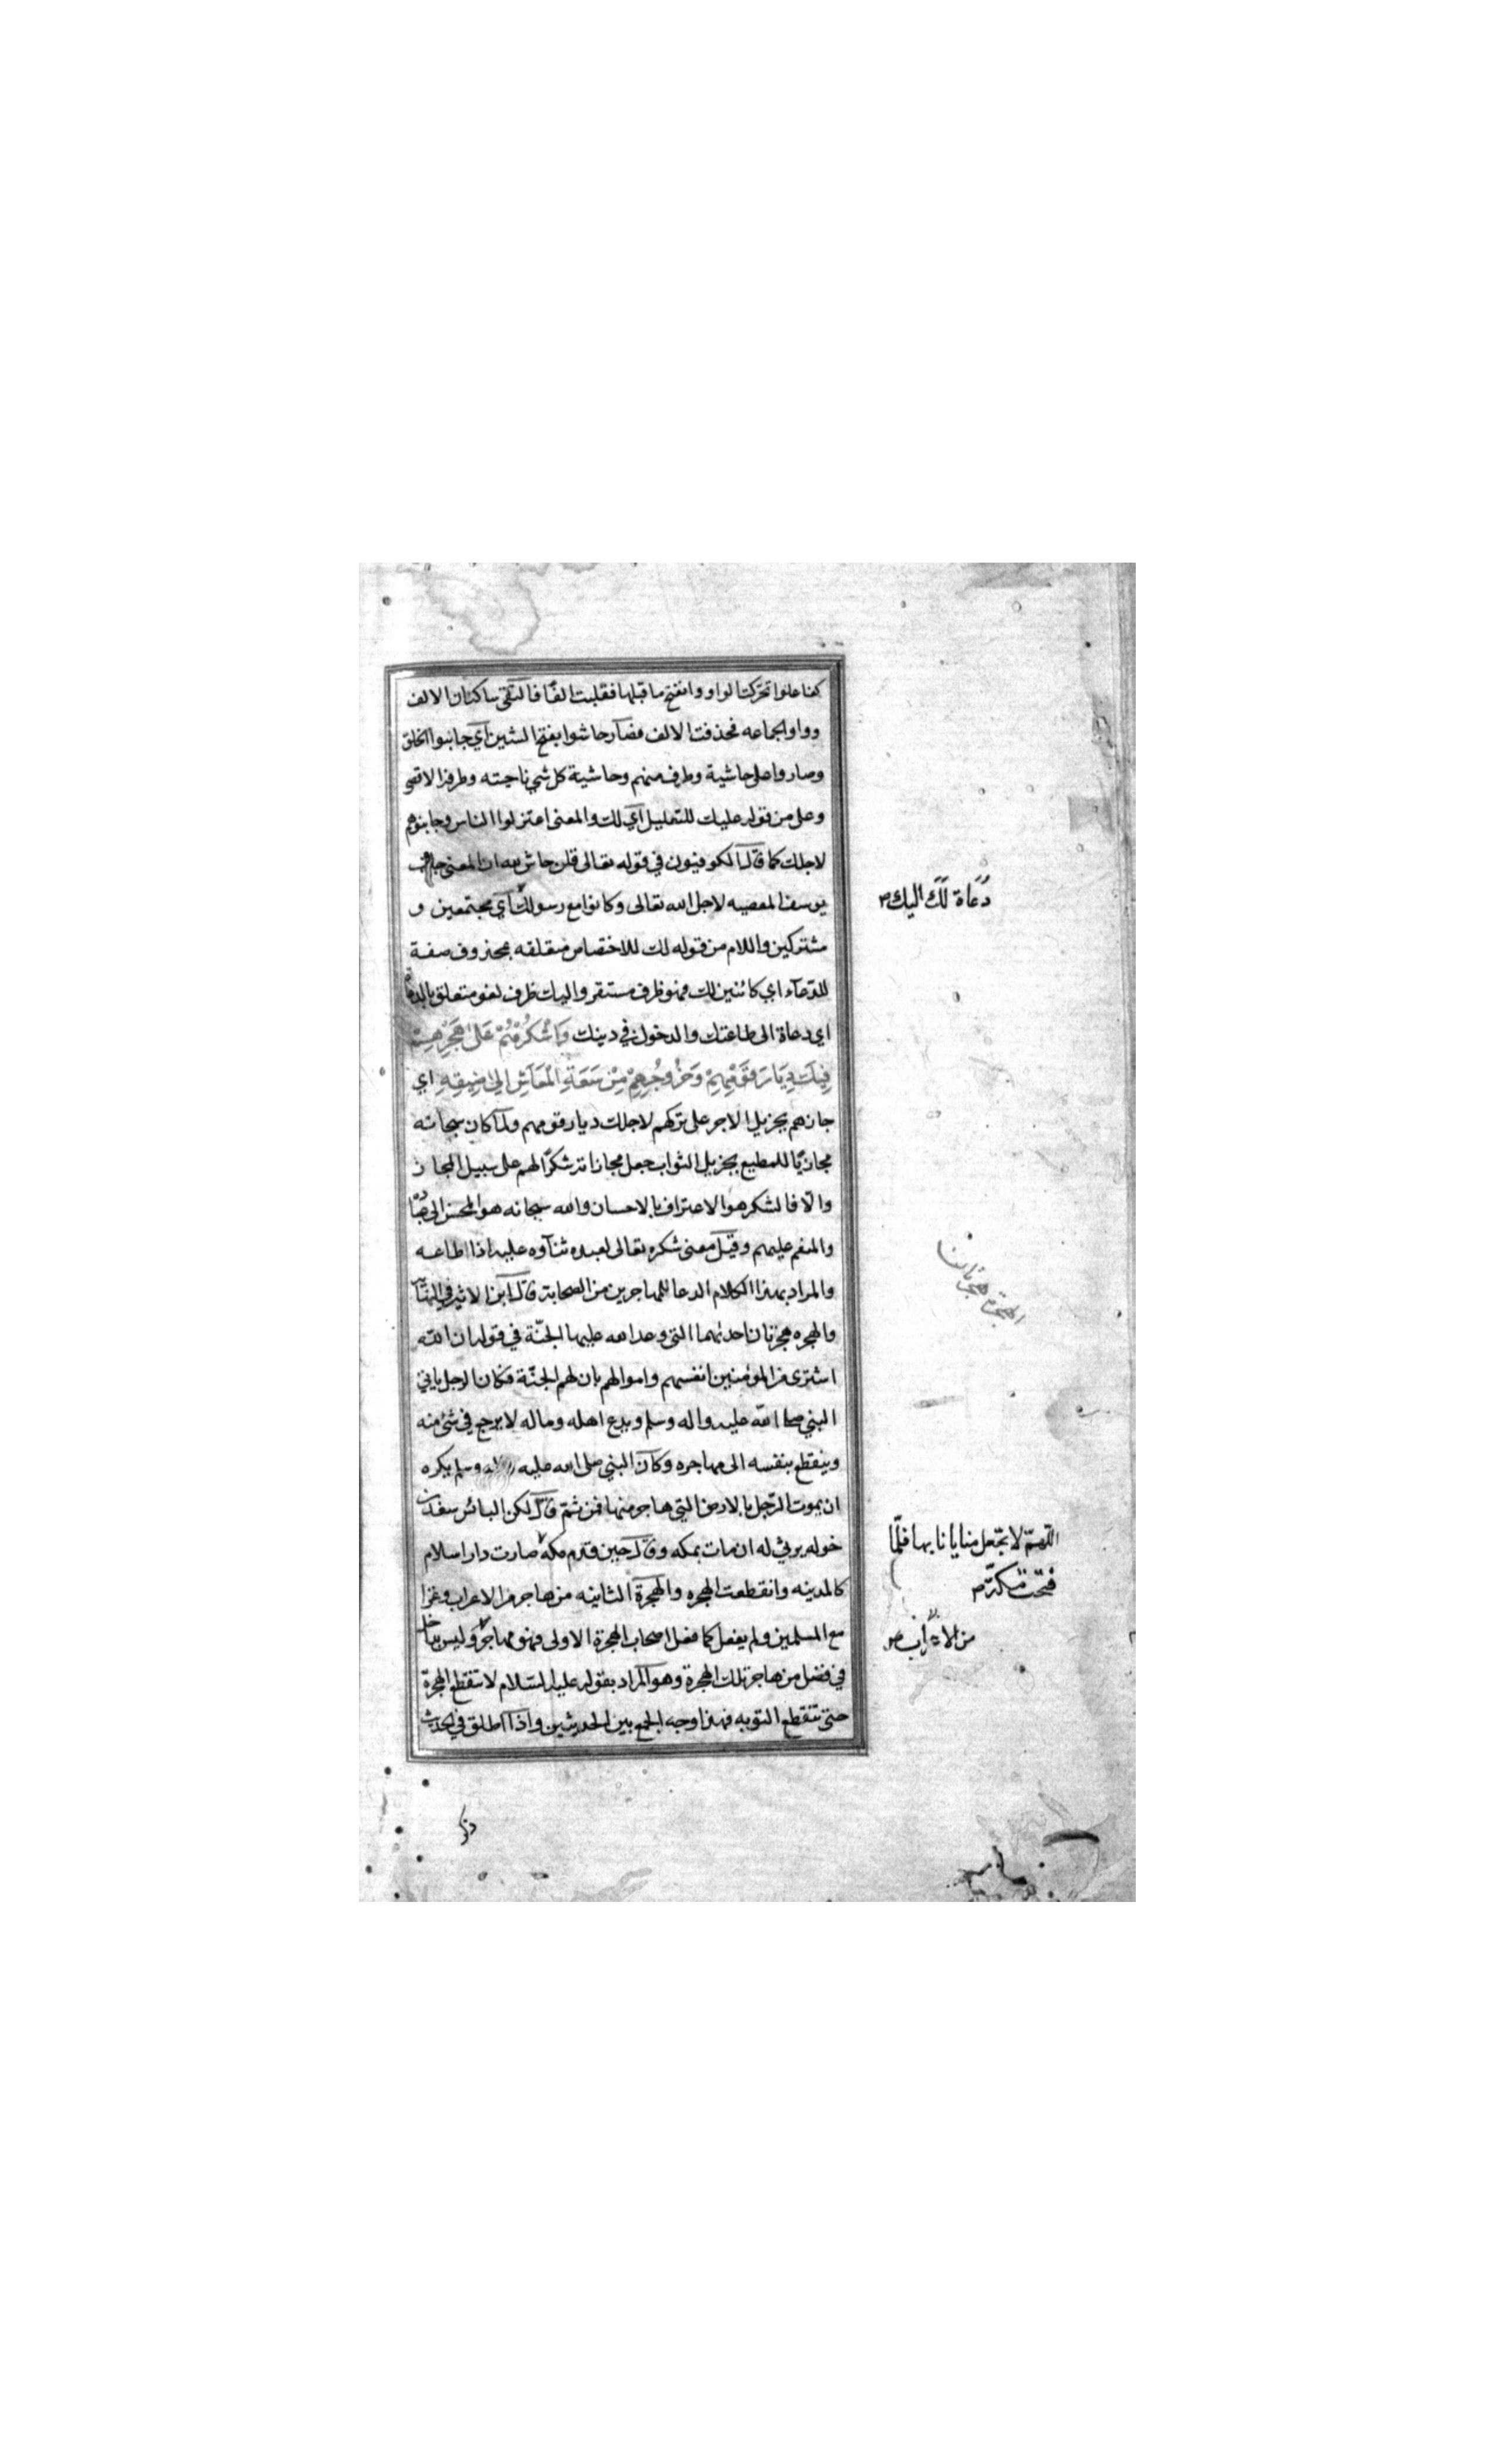 كفاعلوا تحركت الواو وانفتح ما قبلها فقلبت الفًا فالتقى ساكنان الالف
وواو الجماعه فحذفت الالف فصار حاشوا بفتح الشين اي جانبوا الخلق
وصاروا على حاشية وطرف منهم وحاشية كل شي ناحيته وطرفه الاقصى
وعلى من قوله عليك للتعليل اي لك والمعنى اعتزلوا الناس وجانبوهم
لاجلك كما قال الكوفيون في قوله تعالى قلن حاش لله ان المعنى جانب
يوسف المعصيه لاجل الله تعالى وكانوا مع رسولك اي مجتمعين و
دُعَاة لَكَ اليك
مشتركين واللام من قوله لك للاختصاص متعلقه بمحذوف صفة
للدعآء اي كائنين لك فهو ظرف مستقر واليك ظرف لغو متعلق بالدعاة
اي دعاة الى طاعتك والدخول في دينك وَاشْكُرْهُمْ عَلى هَجْرِهِمْ
فِيكَ دِيَارَ قَوْمِهِمْ وَخُرُوجِهِمْ مِنْ سَعَةِ الْمَعَاشِ اِلىٰ ضِيقِهِ اي
جازهم بجزيل الاجر على تركهم لاجلك ديار قومهم ولما كان سبحانه
مجازيًا للمطيع بجزيل الثواب جعل مجازاته شكرًا لهم على سبيل المجاز
والّا فالشكر هو الاعتراف بالاحسان والله سبحانه هو المحسن الى عباده
والمنعم عليهم وقيل معنى شكره تعالى لعبده ثنآوه عليه اذا اطاعه
والمراد بهذا الكلام الدعا للمهاجرين من الصحابة قال ابن الاثير في النهاية
الهجرة هجرتان
والهجره هجرتان احدٰيهما التى وعد الله عليها الجنّة في قوله ان الله
اشترى من المؤمنين انفسهم واموالهم بان لهم الجنّة فكان الرجل ياتي
النبي صلى الله عليه واله وسلم ويدع اهله وماله لا يرجع في شئ منه
وينقطع بنفسه الى مهاجره وكان النبي صلى الله عليه واله وسلم يكره
ان يموت الرّجل بالارض التي هاجر منها فمن ثمّ قال لكن البائس سعد بن
خوله يرثي له ان مات بمكه وقال حين قدم مكه صارت دار اسلام
اللّهمّ لا تجعل منايانا بها فلمّا
فتحت مكة
كالمدينه وانقطعت الهجره والهجرة الثانيه من هاجر من الاعراب وغزا
من الاعراب
مع المسلمين ولم يفعل كما فعل اصحاب الهجرة الاولى فهو مهاجر وليس بداخل
في فضل من هاجر تلك الهجرة وهو المراد بقوله عليه السّلام لا تنقطع الهجرة
حتى تنقطع التوبه فهذا وجه الجمع بين الحديثين واذا اطلق في الحديث
ذكر